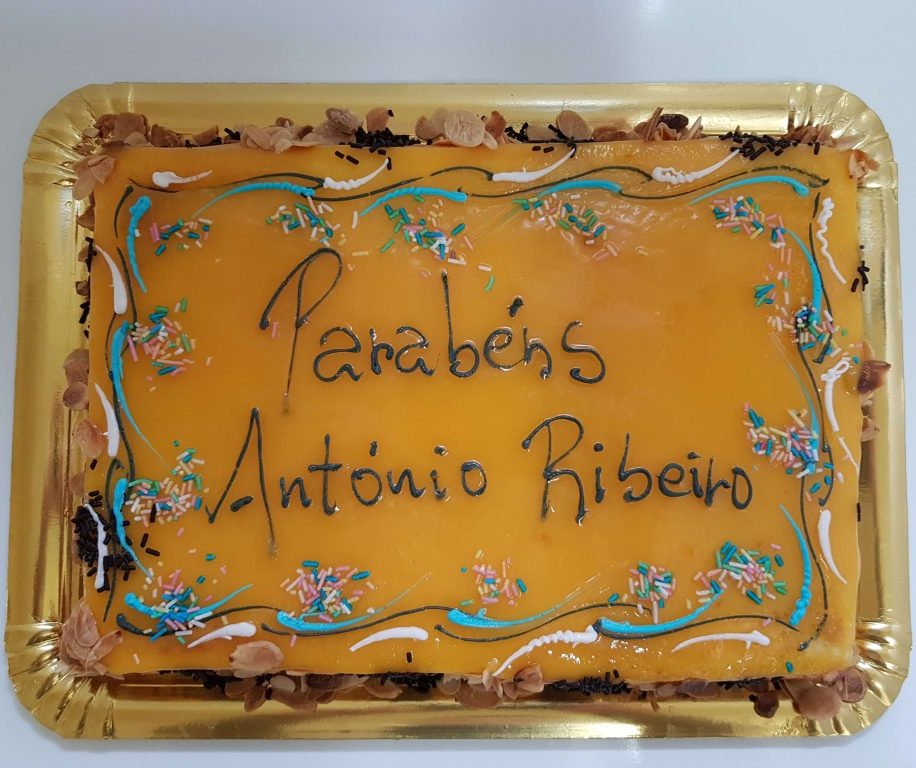 Parabéns
António Ribeiro